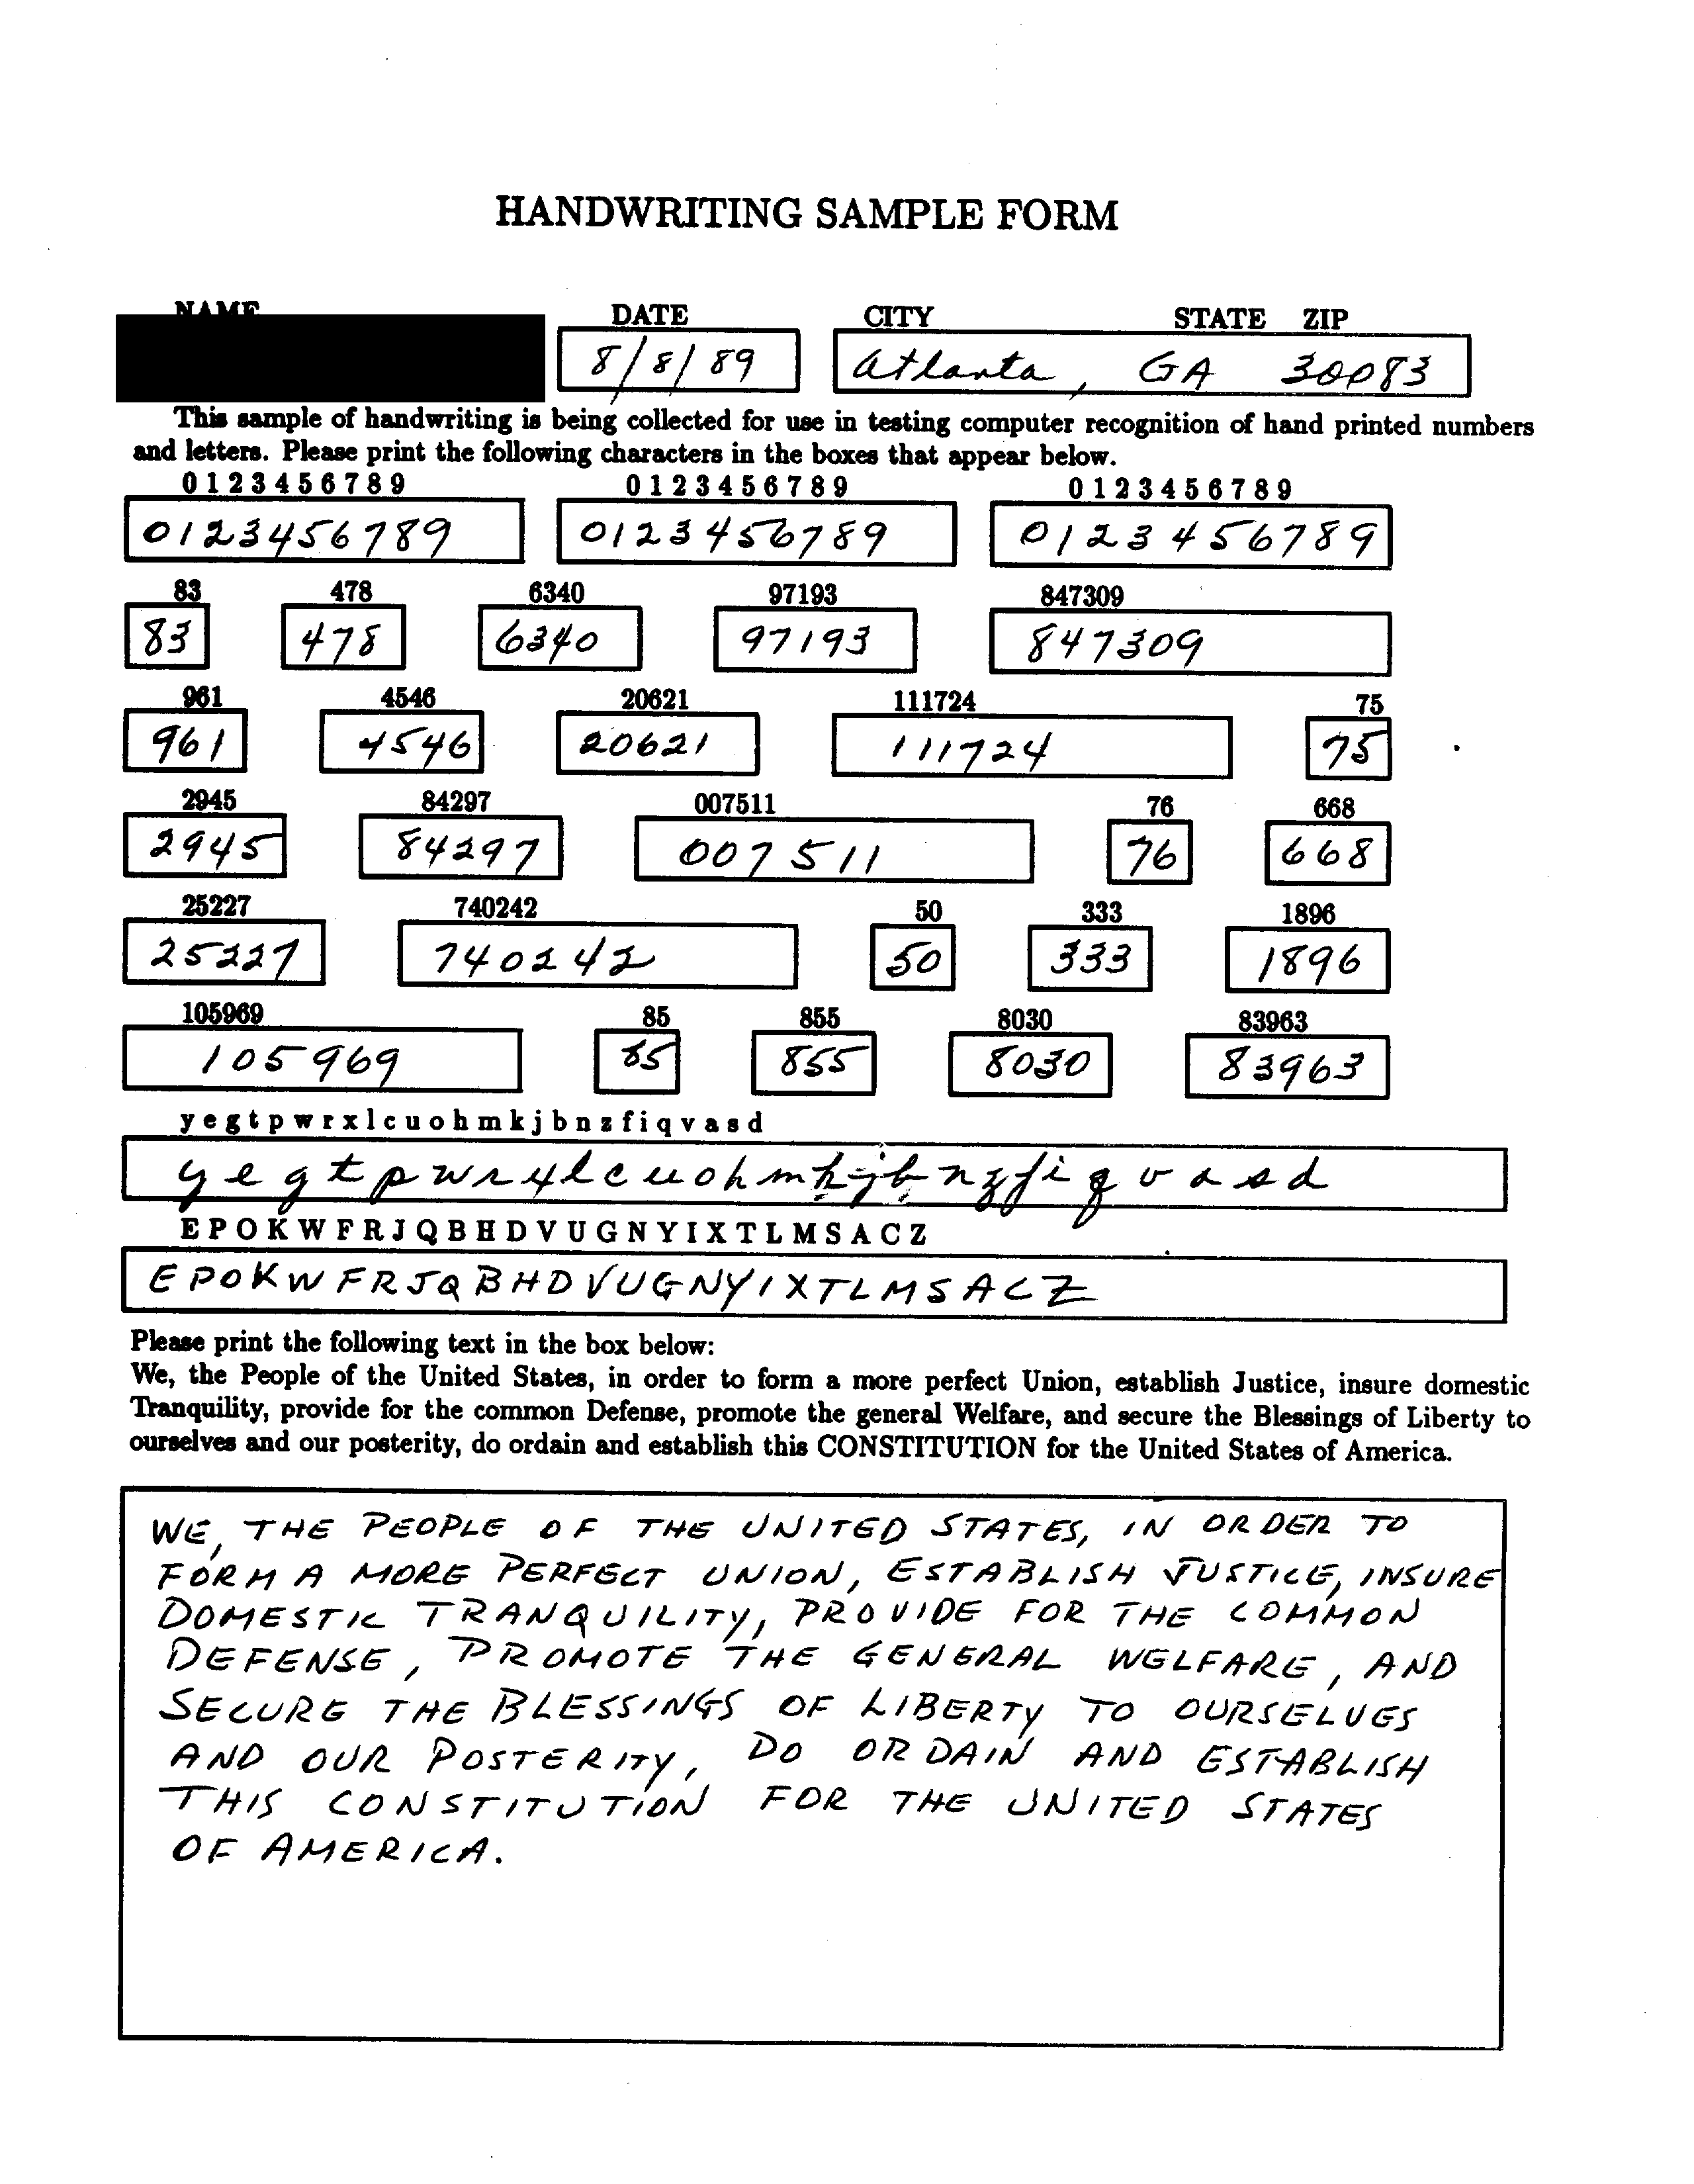 HANDWRITING SAMPLE FORM
NAME DATE CITY STATE ZIP
8/8/89 Atlanta, GA 30083
This sample of handwriting is being collected for use in testing computer recognition of hand printed numbers
and letters. Please print the following characters in the boxes that appear below.
0 1 2 3 4 5 6 7 8 9 0 1 2 3 4 5 6 7 8 9 0 1 2 3 4 5 6 7 8 9
0123456789 0123456789 0123456789
83 478 6340 97193 847309
83 478 6340 97193 847309
961 4546 20621 111724 75
961 4546 20621 111724 75
2945 84297 007511 76 668
2945 84297 007511 76 668
25227 740242 50 333 1896
25227 740242 50 333 1896
105969 85 855 8030 83963
105969 85 855 8030 83963
y e g t p w r x l c u o h m k j b n z f i q v a s d
y e g t p w r x l c u o h m k j b n z f i q v a s d
E P O K W F R J Q B H D V U G N Y I X T L M S A C Z
E P O K W F R J Q B H D V U G N Y I X T L M S A C Z
Please print the following text in the box below:
We, the People of the United States, in order to form a more perfect Union, establish Justice, insure domestic
Tranquility, provide for the common Defense, promote the general Welfare, and secure the Blessings of Liberty to
ourselves and our posterity, do ordain and establish this CONSTITUTION for the United States of America.
WE, THE PEOPLE OF THE UNITED STATES, IN ORDER TO
FORM A MORE PERFECT UNION, ESTABLISH JUSTICE, INSURE
DOMESTIC TRANQUILITY, PROVIDE FOR THE COMMON
DEFENSE, PROMOTE THE GENERAL WELFARE, AND
SECURE THE BLESSINGS OF LIBERTY TO OURSELVES
AND OUR POSTERITY, DO ORDAIN AND ESTABLISH
THIS CONSTITUTION FOR THE UNITED STATES
OF AMERICA.